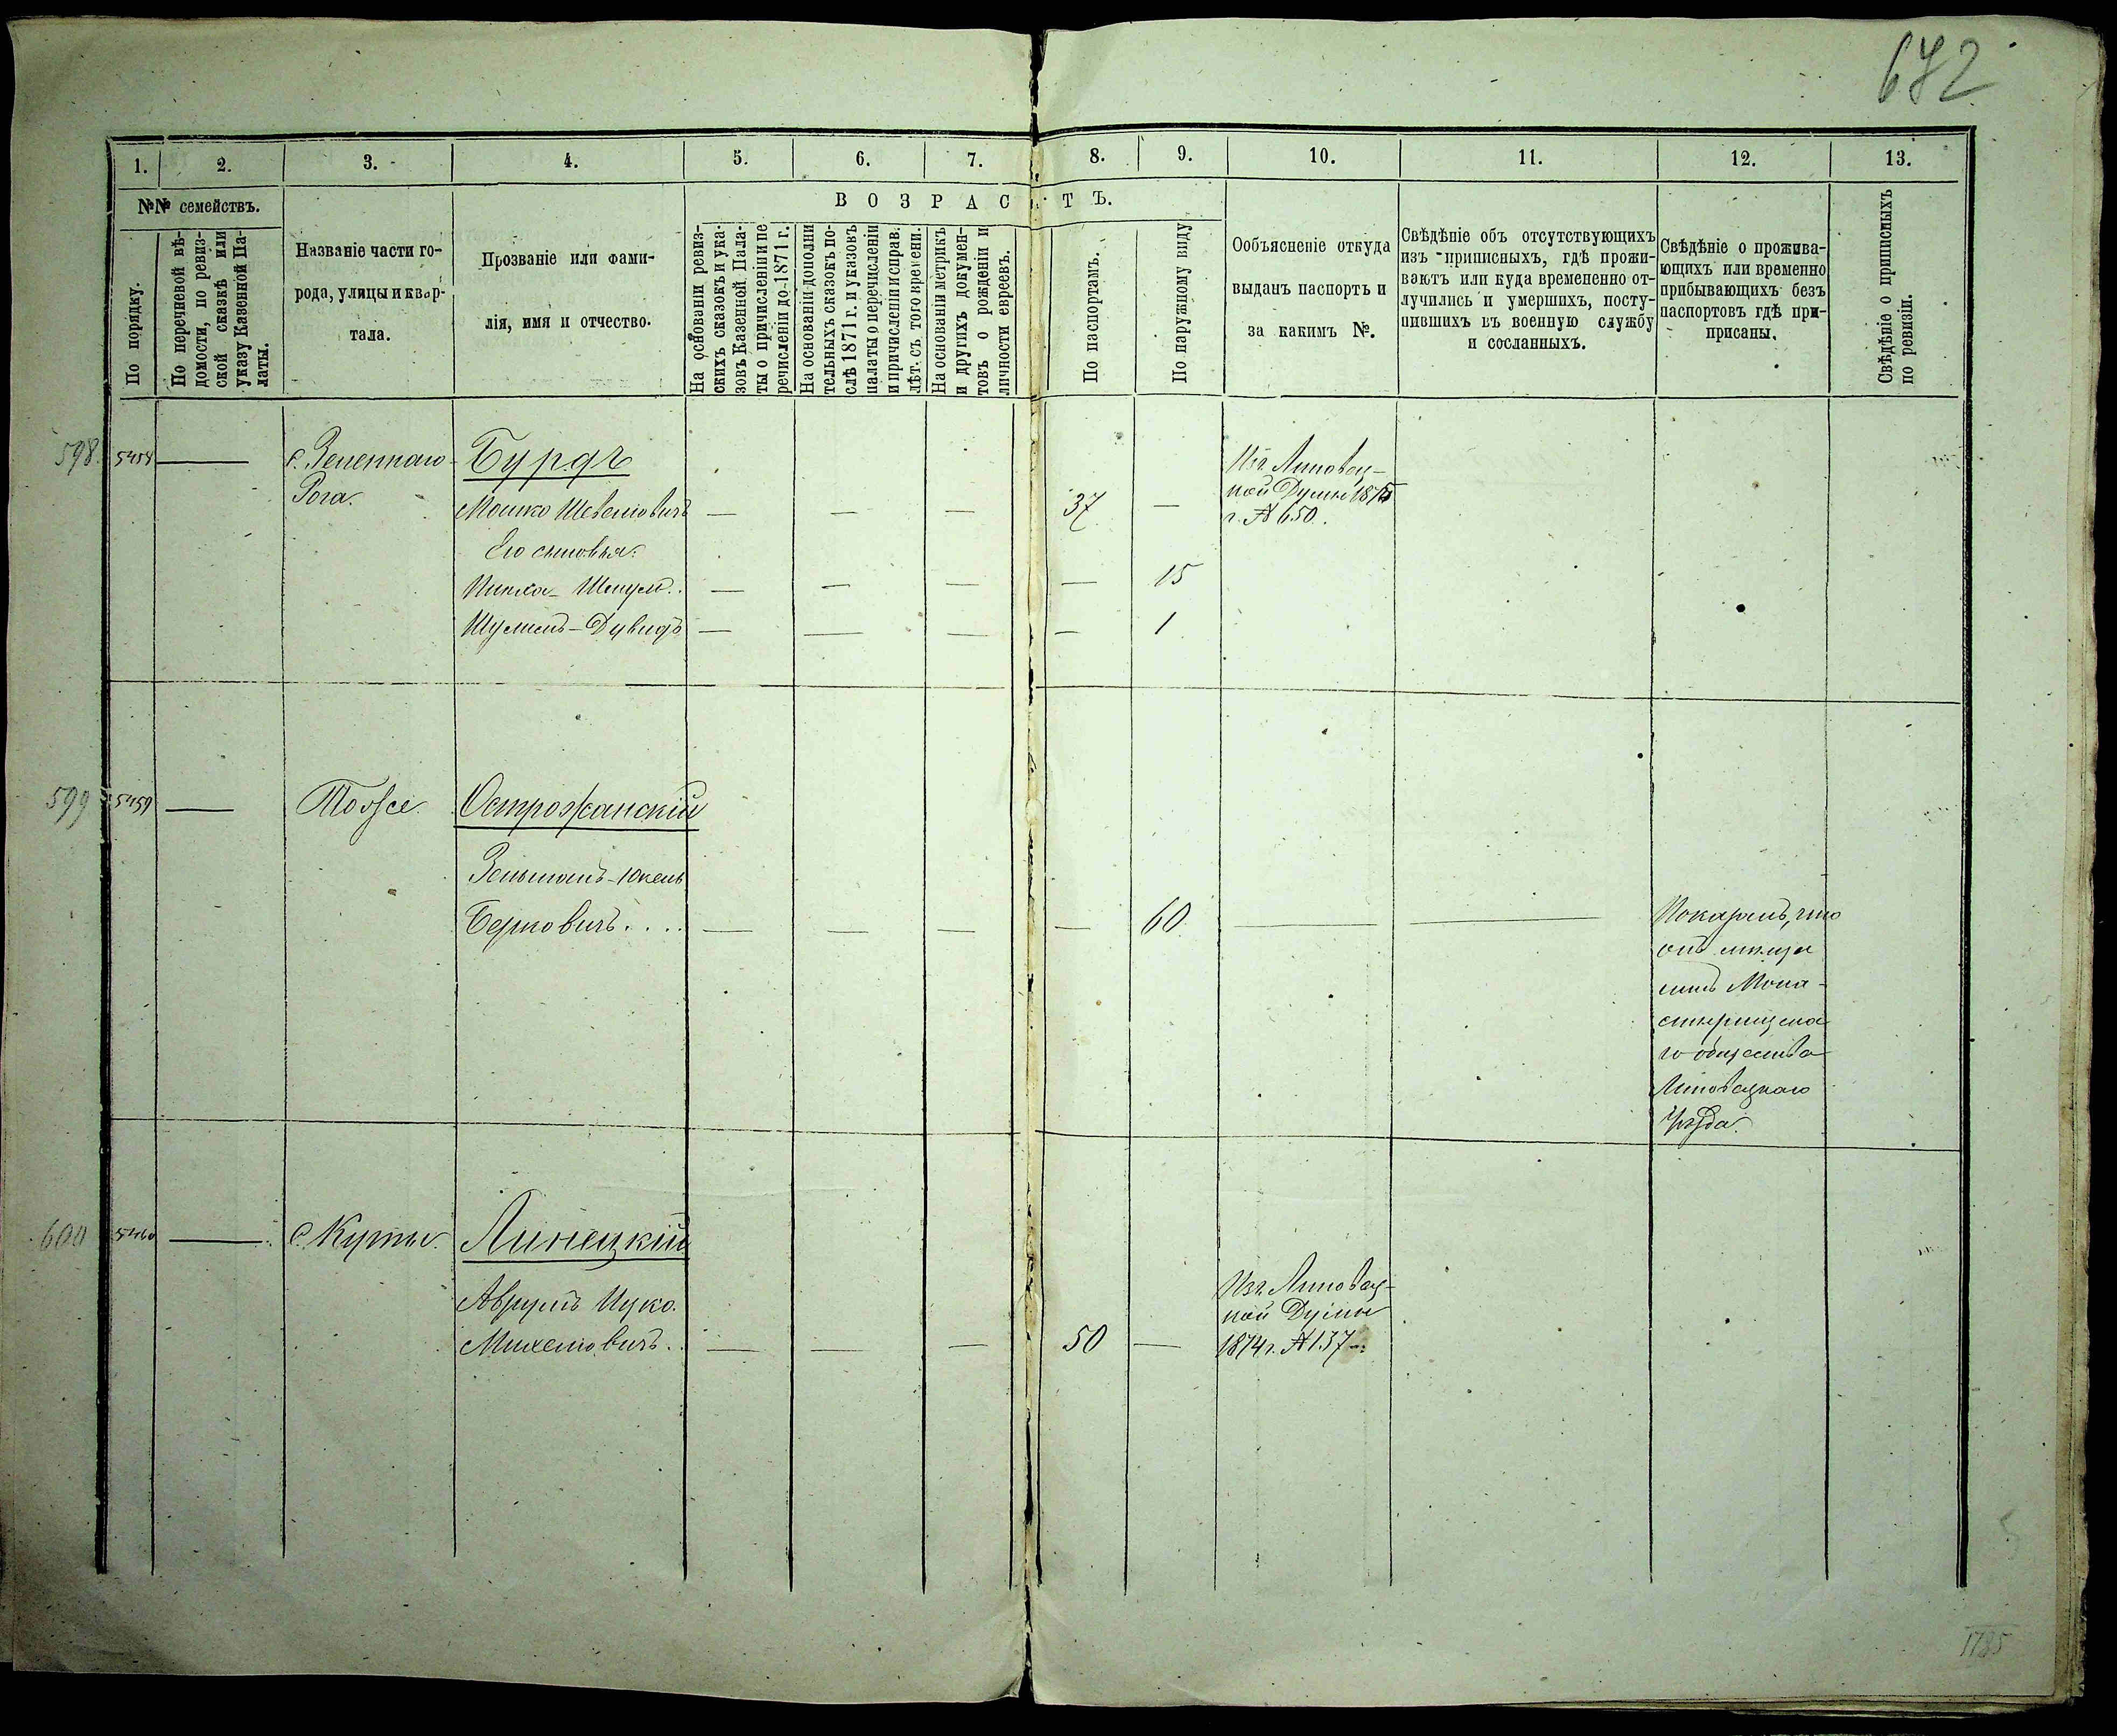 672
1. 2. 3. 4. 5. 6. 7. 8. 9. 10. 11. 12. 13.
№№ семействъ.
По порядку.
По перечневой вѣ-
домости, по ревиз-
ской сказкѣ или
указу Казенной Па-
латы.
Названіе части го-
рода, улицы и квар-
тала.
Прозваніе или фами-
лія, имя и отчество.
ВОЗРАСТЪ.
На основаніи ревиз-
скихъ сказокъ и ука-
зовъ Казенной Пала-
ты о причисленіи и пе
речисленіи до 1871 г.
На основаніи дополни
тельныхъ сказокъ по-
слѣ 1871 г. и указовъ
палаты о перечисленіи
и причисленіи и справ.
лѣт. съ того времени.
На основаніи метрикъ
и другихъ докумен-
товъ о рожденіи и
личности евреевъ.
По паспортамъ.
По наружному виду
Ообъясненіе откуда
выданъ паспортъ и
за какимъ №.
Свѣдѣніе объ отсутствующихъ
изъ приписныхъ, гдѣ прожи-
ваютъ или куда времененно от-
лучились и умершихъ, посту-
пившихъ въ военную службу
и сосланныхъ.
Свѣдѣніе о прожива-
ющихъ или временно
прибывающихъ безъ
паспортовъ гдѣ при-
присаны.
Свѣдѣніе о приписныхъ
по ревизіи.
598. 5458 — с. Зеленкаго Бурдъ
Рога.
Мошко Шевелiовичъ — — — 37 —
Изъ Липовец-
кой Думы 1875
г. № 650.
Его сыновья:
Пинхас Шмуль.. — — — — 15
Шулимъ-Дувидъ — — — — 1
599 5459 — Тоже. Острожанскій
Зельманъ-Юкель
Берковичъ.... — — — — 60 — —
Показалъ, что
онъ мѣща
нинъ Мона-
стырщска
го общества
Липовецкаго
уѣзда.
600 5460 — с. Куты. Линецкій
Аврумъ Ицко.
Михелiовичъ.. — — — 50 —
Изъ Липовец-
кой Думы
1874 г. № 137.
1785